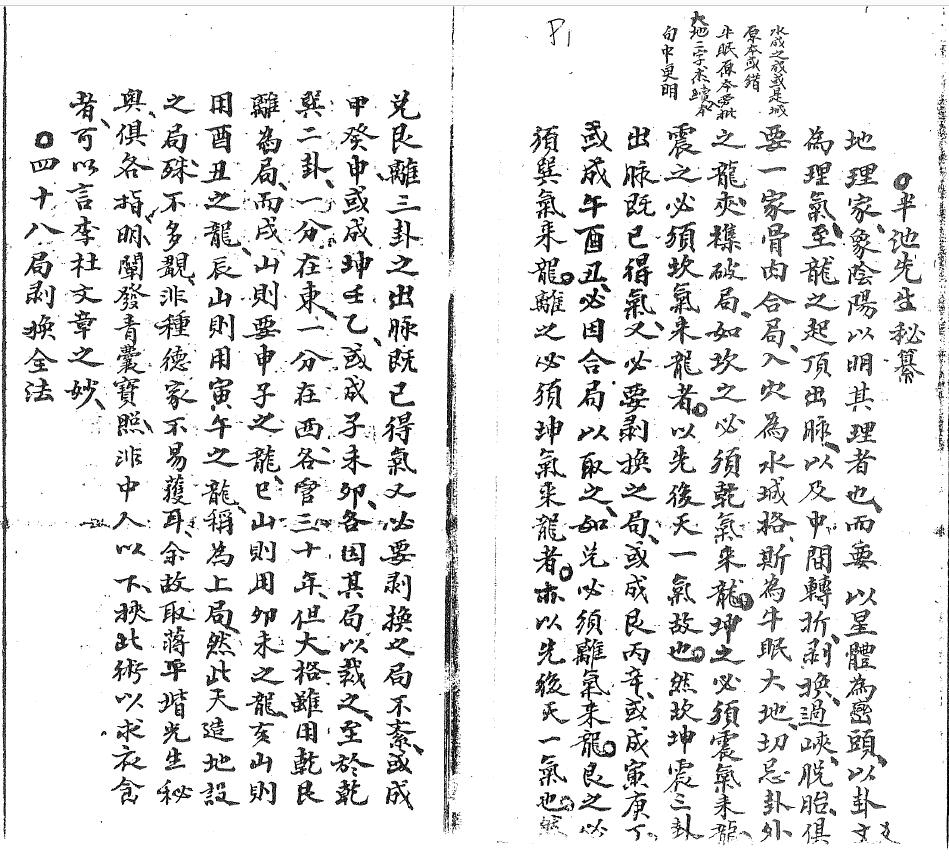 P1
水成之成或是城
原本或錯
牛眠原本
大地二字求
句中更明
○平池先生秘纂
地理家、象陰陽以明其理者也、而要以星體為巒頭、以卦爻
為理氣、至龍之起頂出脉、以及中間轉折、剥換、過峽、脱胎、俱
要一家骨肉合局、入穴為水城格、斯為牛眠大地、切忌卦外
之龍夾雜破局、如坎之必須乾氣來龍、坤之必須震氣來龍
震之必須坎氣來龍者、以先後天一氣故也、然坎坤震三卦
出脉既已得氣、又必要剥換之局、或成艮丙辛、或成寅庚丁
或成午酉丑、必因合局以取之、如兑必須離氣來龍、艮之必
須巽氣來龍、離之必須坤氣來龍者、亦以先後天一氣也、然
兑艮離三卦之出脉既已得氣又必要剥換之局不紊、或成
甲癸申或成坤壬乙、或成子未卯、各因其局以裁之、至於乾
巽二卦、一分在東、一分在西、各管三十年、但大格雖用乾艮
離為局、而戌山則要申子之龍、巳山則用卯未之龍、亥山則
用酉丑之龍、辰山則用寅午之龍、稱為上局、然此天造地設
之局、殊不多覯、非種德家不易獲耳、余故取蔣平堦先生秘
奥、俱各指明、闡發青囊寶照、非中人以下、挾此術以求衣食
者、可以言李杜文章之妙、
○四十八局剥換全法